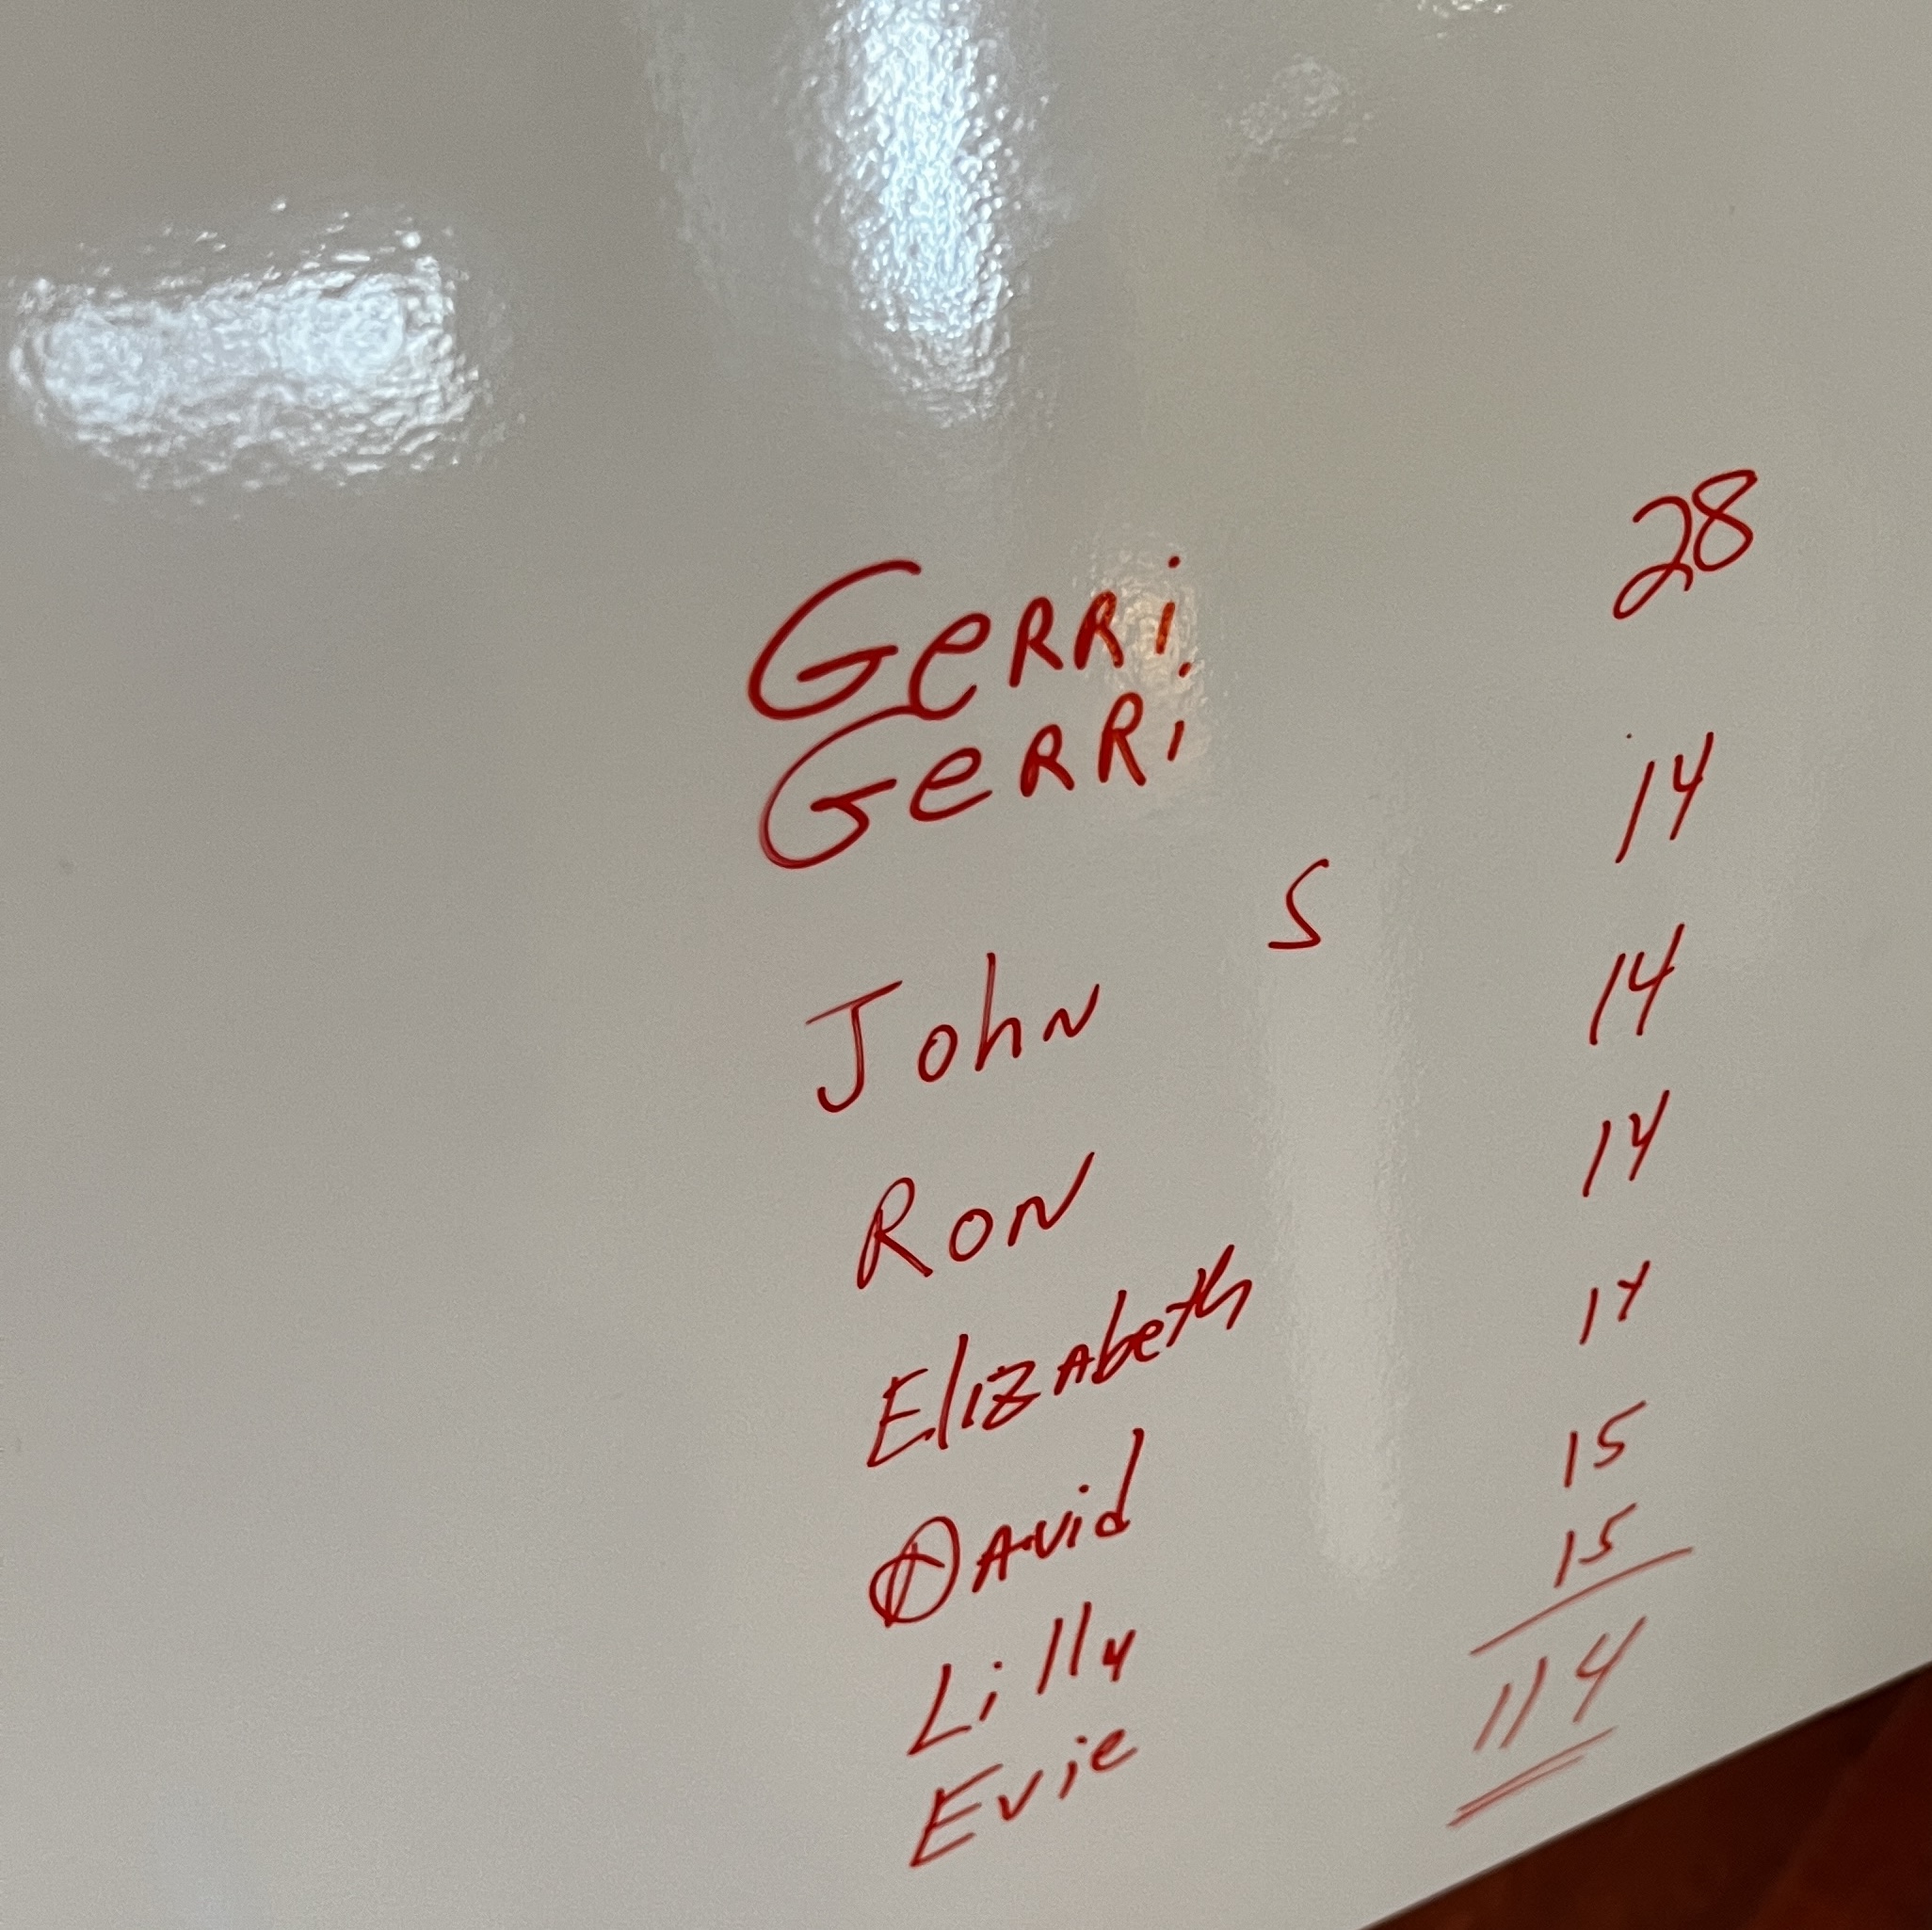 Gerri 28
Gerri
John S 14
Ron 14
Elizabeth 14
David 14
Lilly 15
Evie 15
114